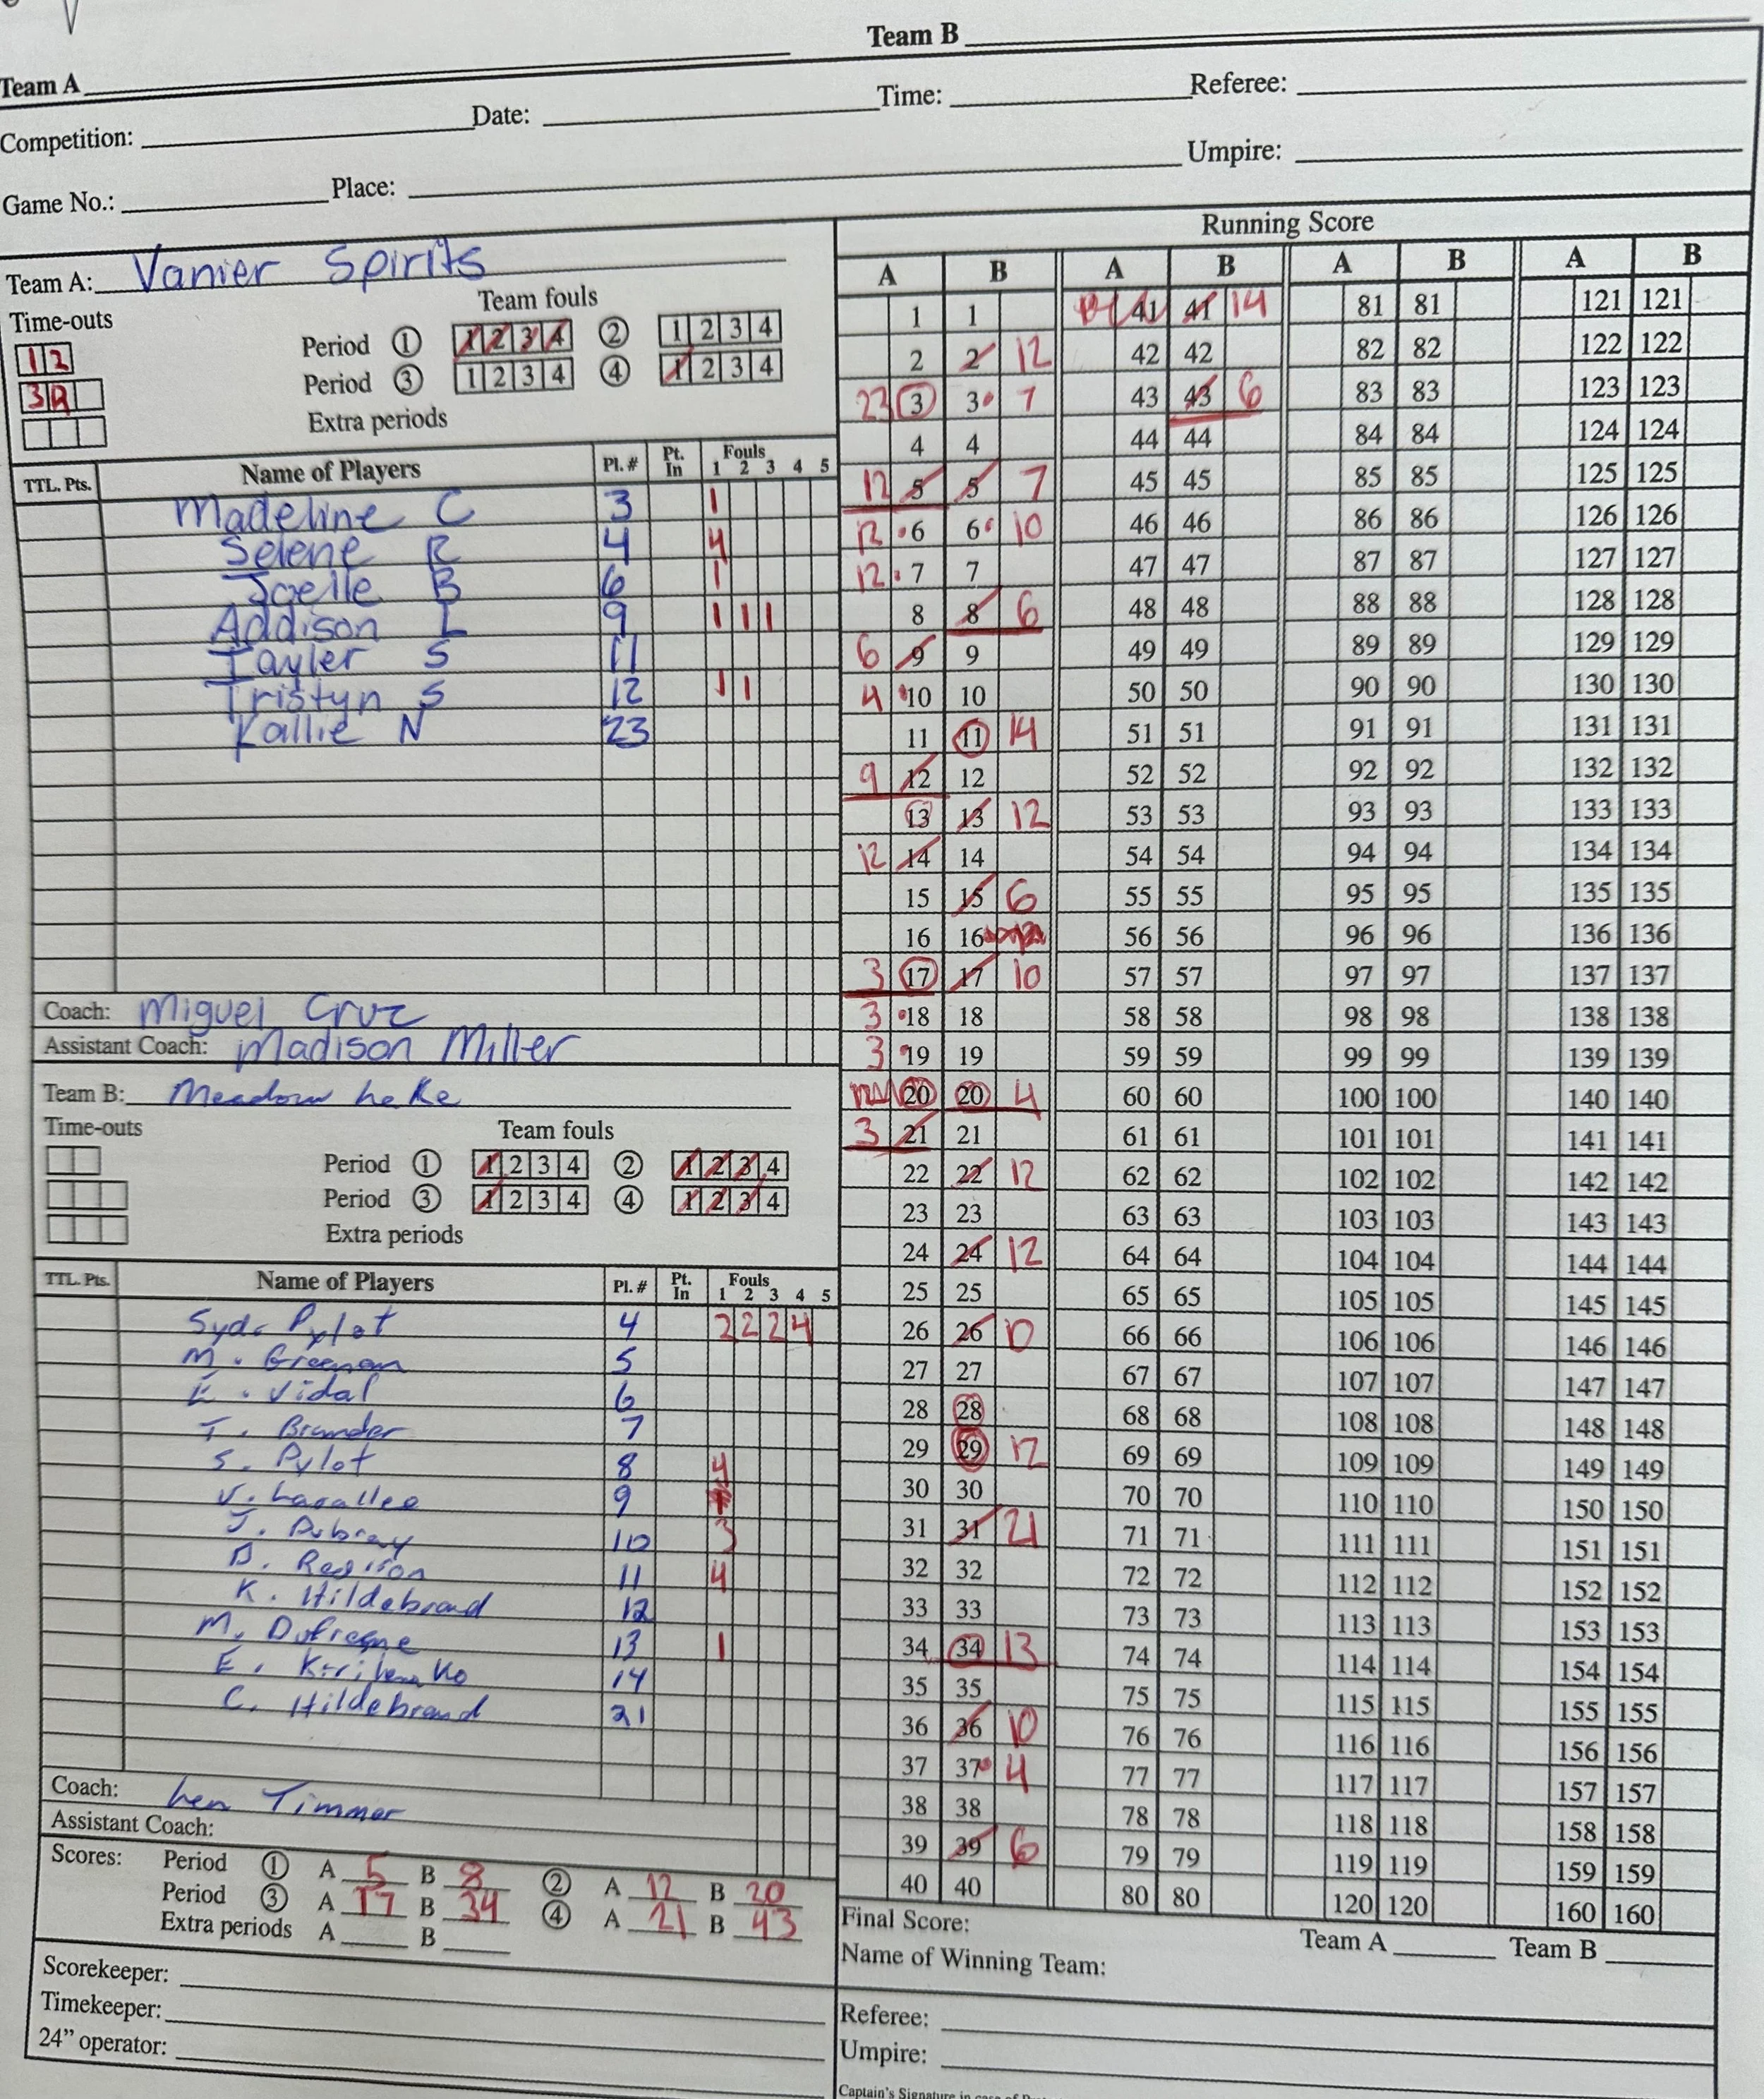 Team A Team B
Competition: Date: Time: Referee:
Game No.: Place: Umpire:
Team A: Vanier Spirits
Time-outs Team fouls
1 2 Period 1 1 2 3 4 2 1 2 3 4
3 Period 3 1 2 3 4 4 1 2 3 4
Extra periods
TTL. Pts. Name of Players Pl. # Pt. In Fouls 1 2 3 4 5
Madeline C 3 1
Selene R 4 4
Joelle B 6 1
Addison L 9 1 1 1
Tayler S 11
Tristyn S 12 1 1
Kallie N 23
Coach: Miguel Cruz
Assistant Coach: Madison Miller
Team B: Meadow Lake
Time-outs Team fouls
Period 1 1 2 3 4 2 1 2 3 4
Period 3 1 2 3 4 4 1 2 3 4
Extra periods
TTL. Pts. Name of Players Pl. # Pt. In Fouls 1 2 3 4 5
Syd. Pylot 4 2 2 2 4
M. Greenan 5
E. Vidal 6
T. Brander 7
S. Pylot 8 4
V. Lavallee 9
J. Dubray 10 3
D. 11 4
K. Hildebrand 12
M. Dufresne 13 1
E. 14
C. Hildebrand 21
Coach: Len Timmer
Assistant Coach:
Scores: Period 1 A 5 B 8 2 A 12 B 20
Period 3 A 17 B 34 4 A 21 B 43
Extra periods A B
Scorekeeper:
Timekeeper:
24” operator:
Running Score
A B A B A B A B
1 1 41 41 14 81 81 121 121
2 2 12 42 42 82 82 122 122
23 3 3 7 43 43 6 83 83 123 123
4 4 44 44 84 84 124 124
12 5 5 7 45 45 85 85 125 125
12 6 6 10 46 46 86 86 126 126
12 7 7 47 47 87 87 127 127
8 8 6 48 48 88 88 128 128
6 9 9 49 49 89 89 129 129
4 10 10 50 50 90 90 130 130
11 11 14 51 51 91 91 131 131
9 12 12 52 52 92 92 132 132
13 13 12 53 53 93 93 133 133
12 14 14 54 54 94 94 134 134
15 15 6 55 55 95 95 135 135
16 16 56 56 96 96 136 136
3 17 17 10 57 57 97 97 137 137
3 18 18 58 58 98 98 138 138
3 19 19 59 59 99 99 139 139
20 20 4 60 60 100 100 140 140
3 21 21 61 61 101 101 141 141
22 22 12 62 62 102 102 142 142
23 23 63 63 103 103 143 143
24 24 12 64 64 104 104 144 144
25 25 65 65 105 105 145 145
26 26 10 66 66 106 106 146 146
27 27 67 67 107 107 147 147
28 28 68 68 108 108 148 148
29 29 12 69 69 109 109 149 149
30 30 70 70 110 110 150 150
31 31 21 71 71 111 111 151 151
32 32 72 72 112 112 152 152
33 33 73 73 113 113 153 153
34 34 13 74 74 114 114 154 154
35 35 75 75 115 115 155 155
36 36 10 76 76 116 116 156 156
37 37 4 77 77 117 117 157 157
38 38 78 78 118 118 158 158
39 39 6 79 79 119 119 159 159
40 40 80 80 120 120 160 160
Final Score: Team A Team B
Name of Winning Team:
Referee:
Umpire:
Captain's Signature in case of